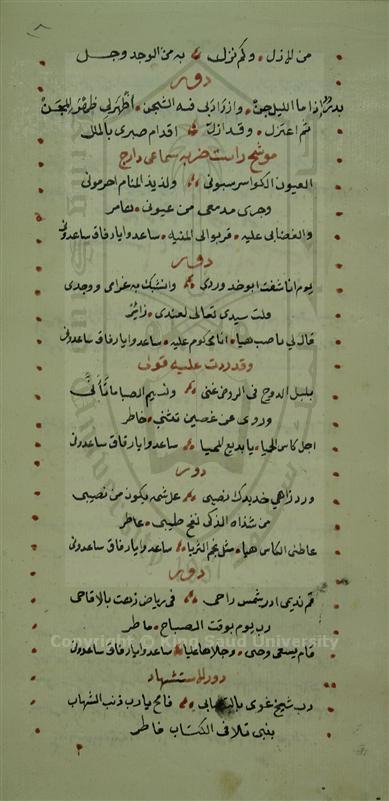 من للازل * وكم نزل * به من الوجد وجل
دور
بدر اذا ما الليل جن * وازداد بي فيه الشجن * أظهر لي ظهر المجن
ثم اعتزل * وقد ازل * اقدام صبري بالملل
موشح راست ضربه سماعي دارج
العيون الكواسر سبوني * ولذيذ المنام احرموني
وجرى مدمعي من عيوني *
والغضابي عليه * قربوا لي المنيه * ساعدوا يا رفاق ساعدوني
دور
يوم انا شفت ابو خد وردي * وانشبك به غرامي ووجدي
قلت سيدي تعالى لعندي * زائر
قال لي ما صب هيا * انا محكوم عليه * ساعدوا يا رفاق ساعدوني
وقد زدت عليه قولي
بلبل الدوح في الروض غنى * ونسيم الصبا ما تأنى
وروى عن غصين تثنى * خاطر
اجل كاس الحيا * يا بديع المحيا * ساعدوا يا رفاق ساعدوني
دور
ورد زاهي خديدك نصيبي * عل شمه يكون من نصيبي
من شذاه الذكي نفح طيبي * عاطر
عاطني الكاس هيا * مثل نجم الثريا * ساعدوا يا رفاق ساعدوني
دور
قم نديمي ادر شمس راحي * في رياض زهت بالاقاحي
رب يوم بوقت الصباح * ماطر
قام يسعى وحيى * وجلاها عليا * ساعدوا يا رفاق ساعدوني
دور للاستشهاد
رب شيخ غوى * فالح يا رب ذنب الشهاب
بنبي تلا في الكتاب فاطر
Copyright © King Saud University